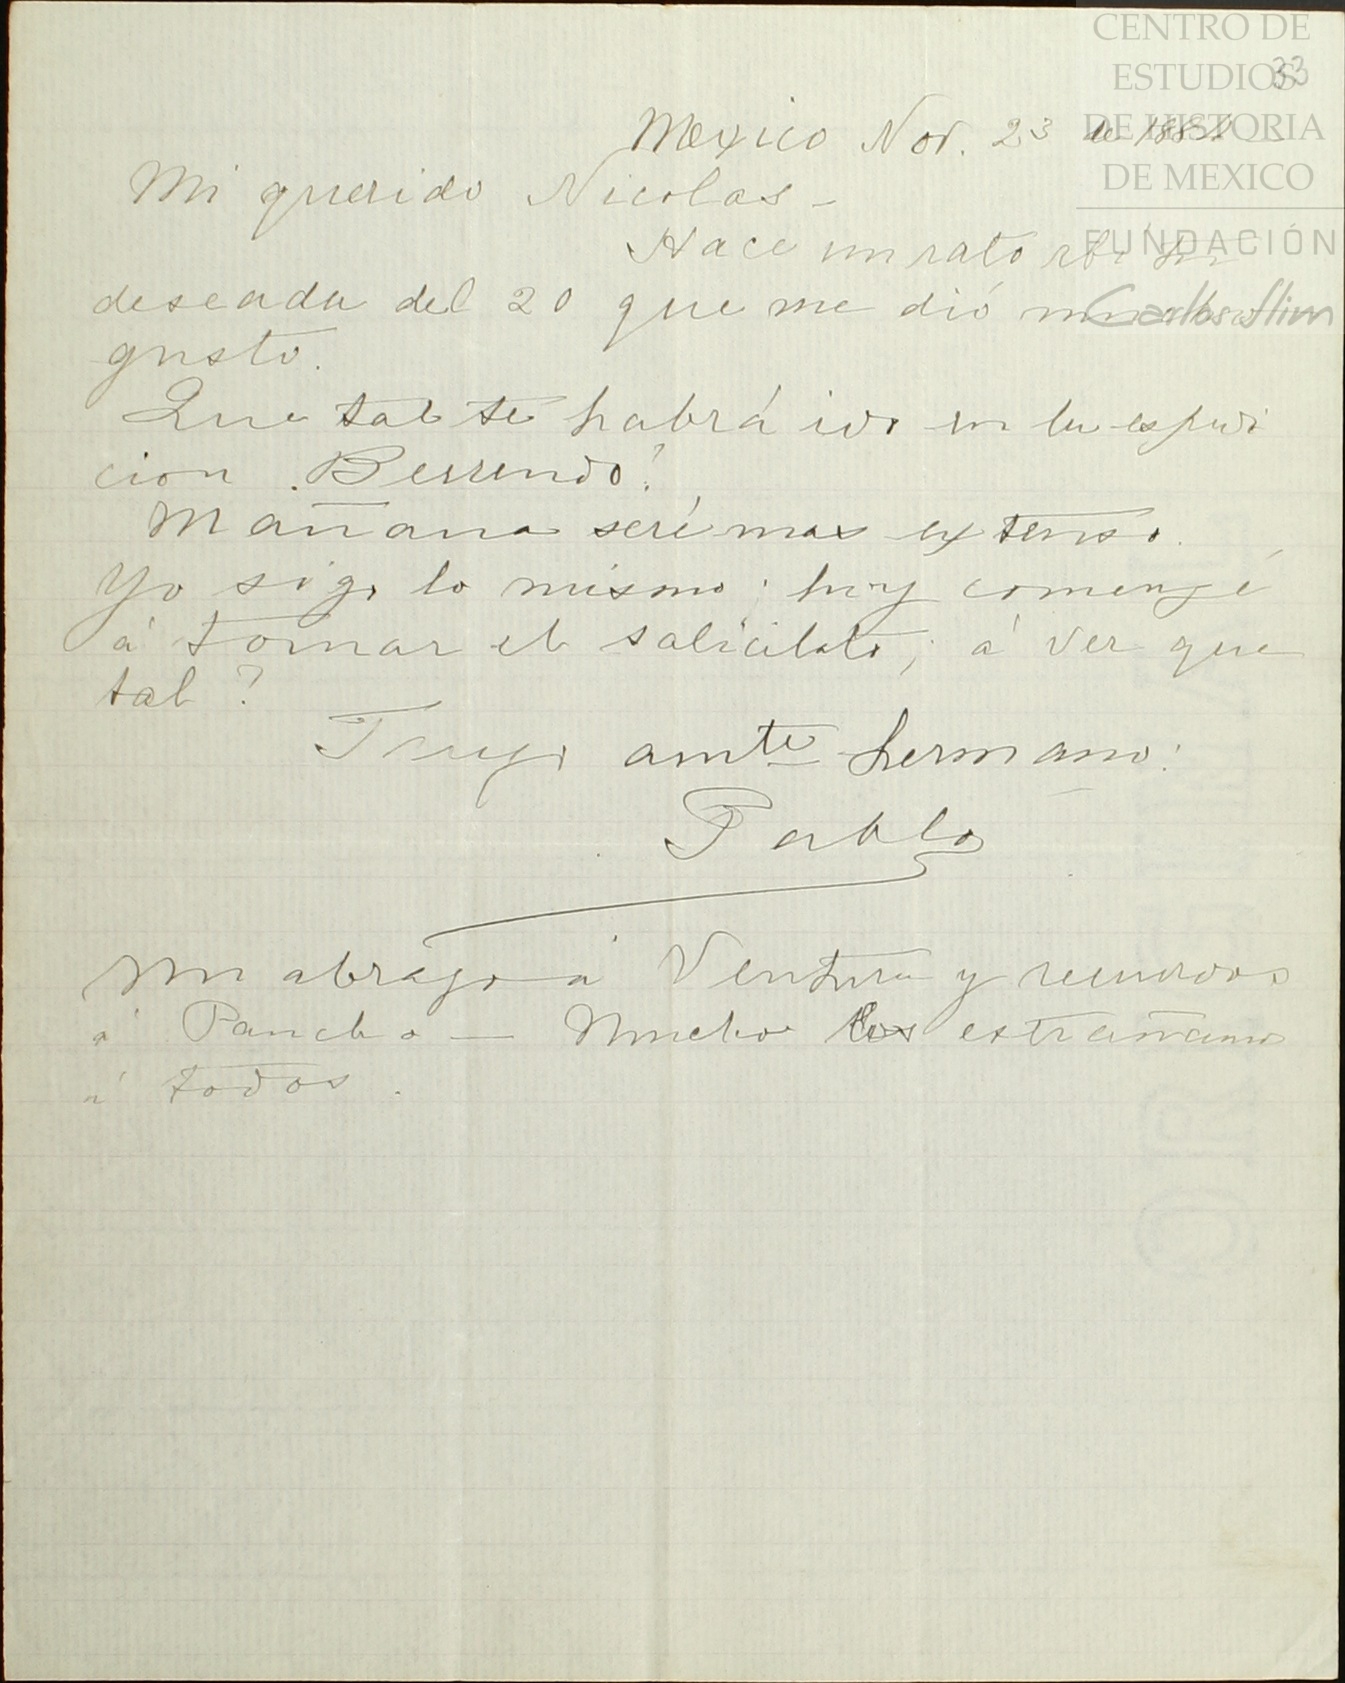 CENTRO DE
ESTUDIOS
DE HISTORIA
DE MEXICO
FUNDACIÓN
Carlos Slim
33
Mexico Nov. 23 de
Mi querido Nicolas –
Hace un rato rbí tu
deseada del 20 que me dió mucho
gusto.
Que tal te habrá ido en la espedi
cion Berrendo?
Mañana seré mas extenso.
Yo sigo lo mismo; hoy comenzé
á tomar el salicilato; á ver que
tal?
Tuyo amte hermano:
Pablo
Un abrazo á Ventura y recuerdos
á Pancho — Mucho los estrañamos
á todos.